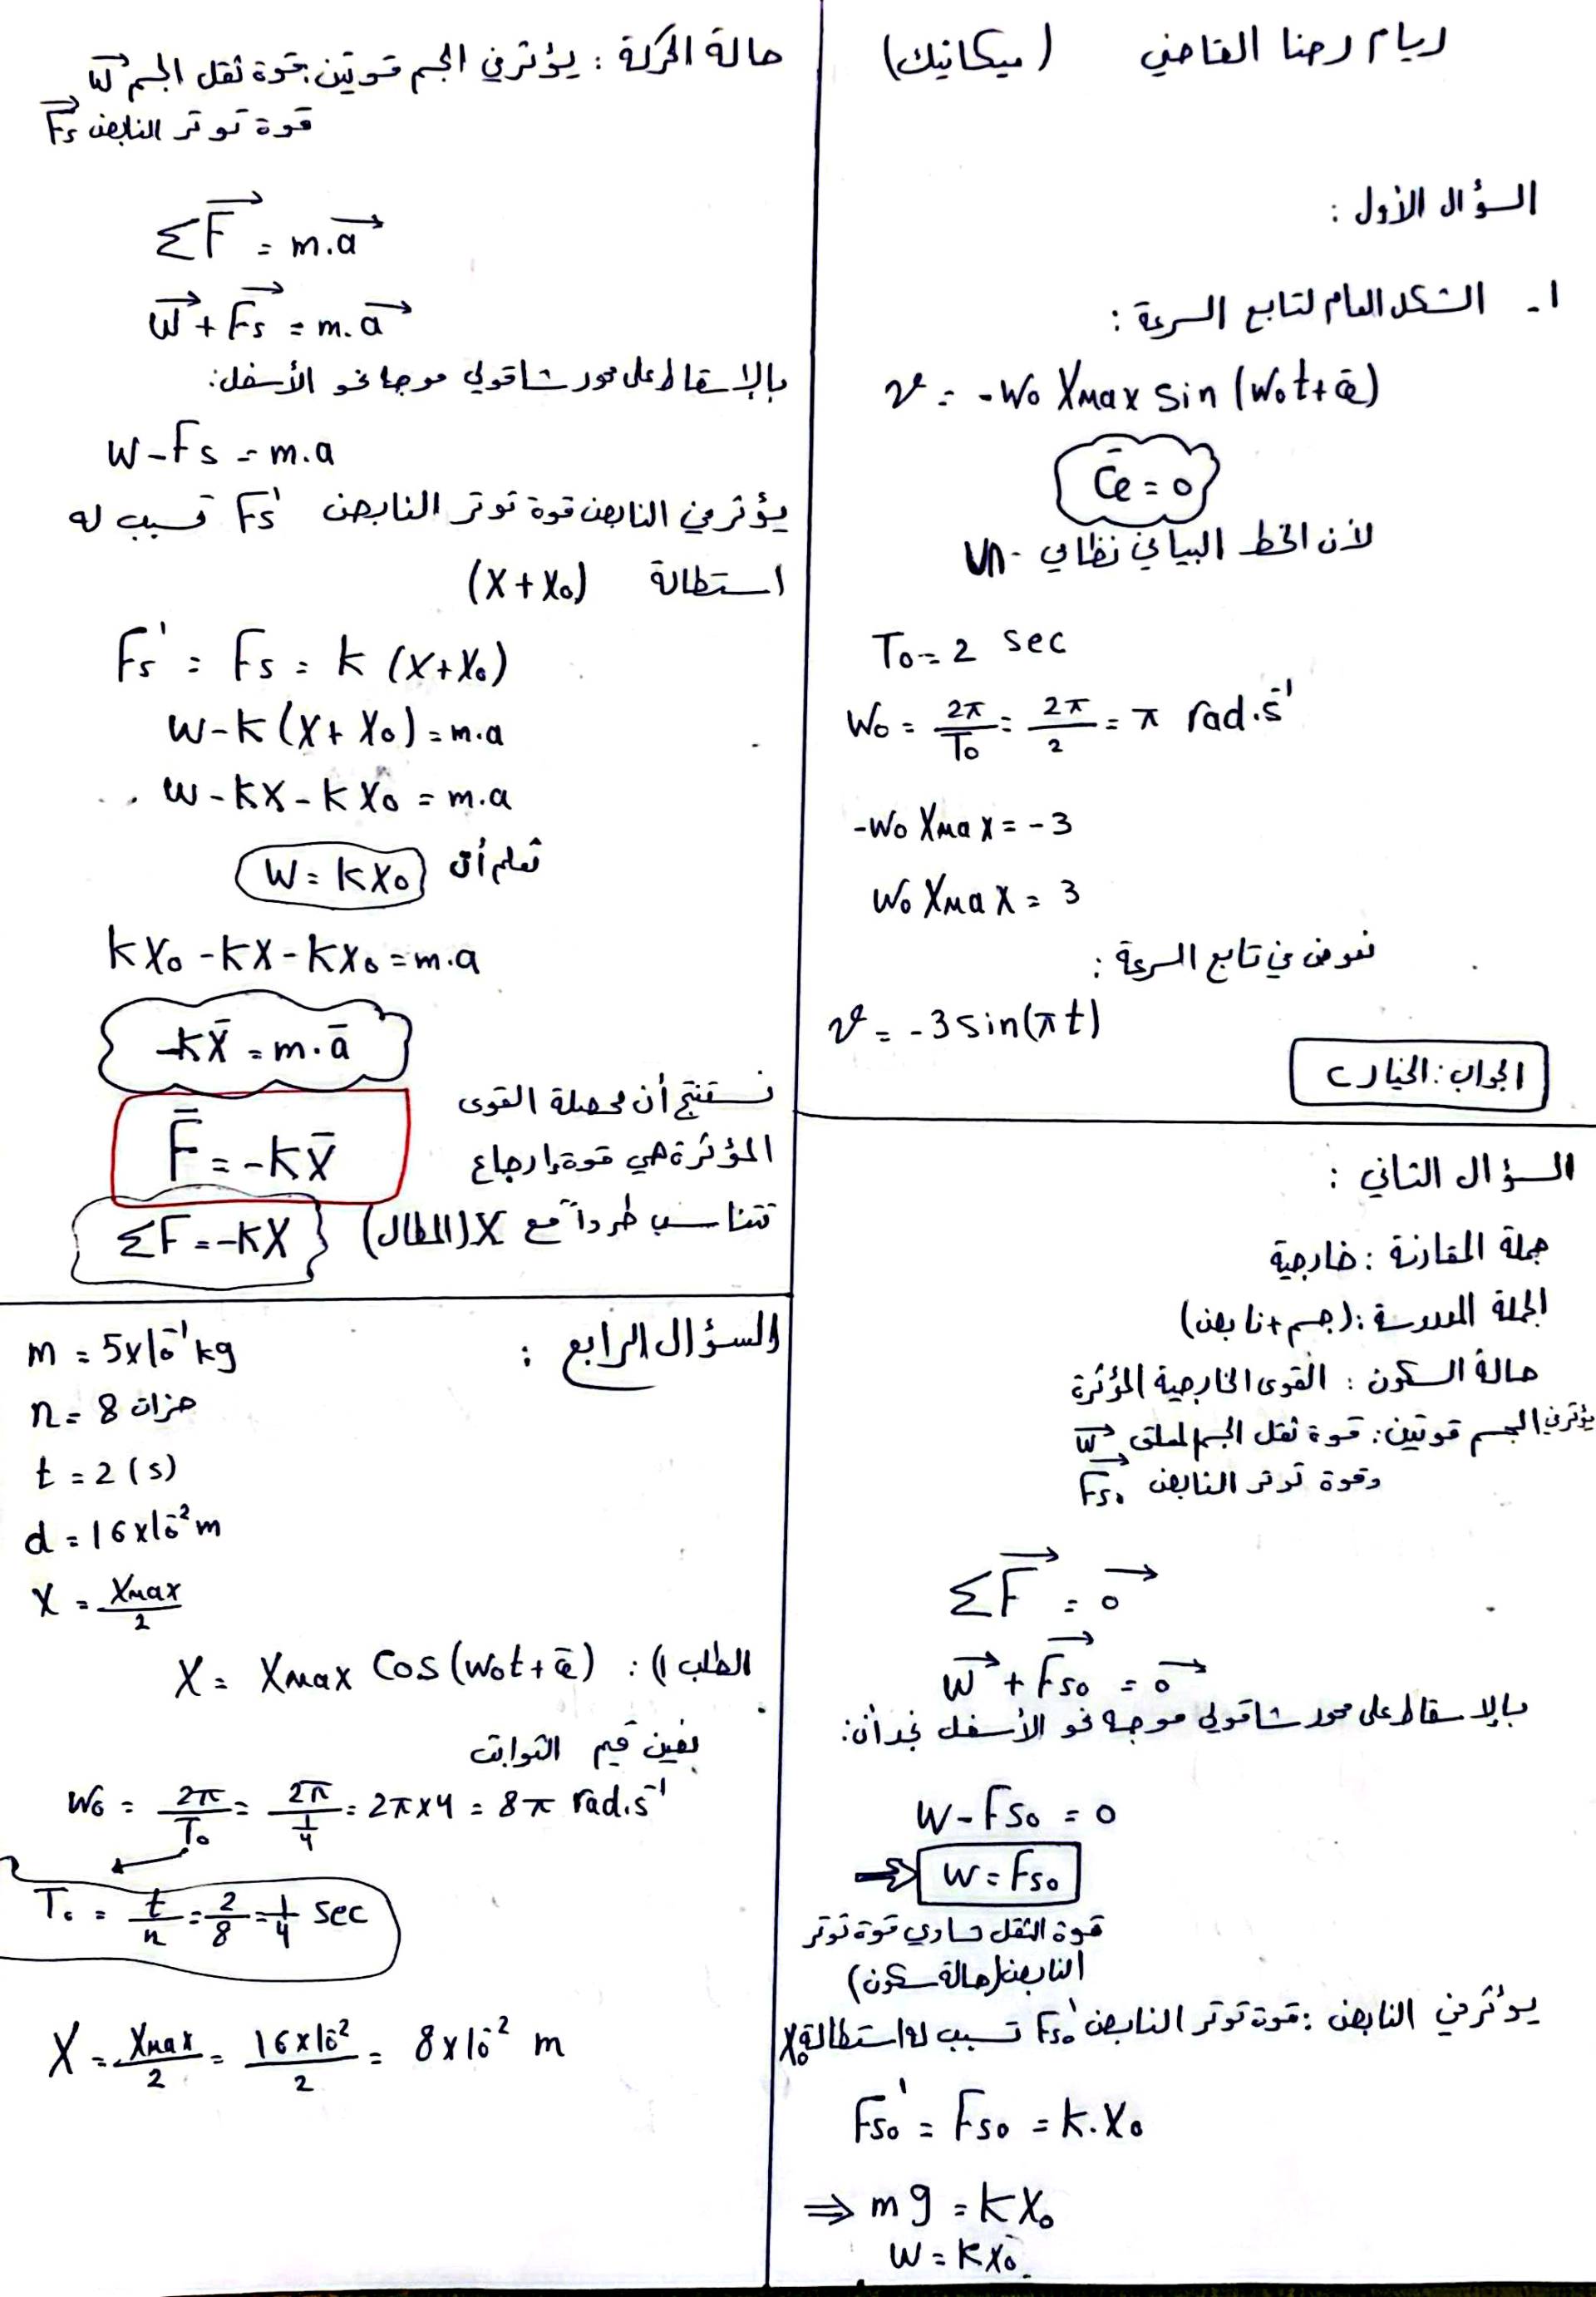 ريام رضا القاضي (ميكانيك)
السؤال الأول :
1- الشكل العام لتابع السرعة :
v = -w₀ Xmax sin (w₀t+φ̄)
φ̄ = 0
لأن الخط البياني نظامي
T₀ = 2 sec
w₀ = 2π/T₀ = 2π/2 = π rad.s⁻¹
-w₀ Xmax = -3
w₀ Xmax = 3
نعوض في تابع السرعة :
v = -3 sin(πt)
الجواب : الخيار C
السؤال الثاني :
جملة المقارنة : خارجية
الجملة المدروسة : (جسم + نابض)
حالة السكون : القوى الخارجية المؤثرة
يؤثر في الجسم قوتين : قوة ثقل الجسم المعلق W⃗
وقوة توتر النابض F⃗s₀
ΣF⃗ = 0⃗
W⃗ + F⃗s₀ = 0⃗
بالإسقاط على محور شاقولي موجه نحو الأسفل نجد أن:
W - Fs₀ = 0
⇒ W = Fs₀
قوة الثقل تساوي قوة توتر
النابض (حالة سكون)
يؤثر في النابض : قوة توتر النابض Fs₀' تسبب له استطالة X₀
Fs₀' = Fs₀ = k.X₀
⇒ mg = kX₀
W = kX₀
حالة الحركة : يؤثر في الجسم قوتين : قوة ثقل الجسم W⃗
قوة توتر النابض F⃗s
ΣF⃗ = m.a⃗
W⃗ + F⃗s = m.a⃗
بالإسقاط على محور شاقولي موجها نحو الأسفل:
W - Fs = m.a
يؤثر في النابض قوة توتر النابض Fs' تسبب له
استطالة (X + X₀)
Fs' = Fs = k (X+X₀)
W - k (X + X₀) = m.a
W - kX - kX₀ = m.a
نعلم أن W = kX₀
kX₀ - kX - kX₀ = m.a
-kX̄ = m.ā
نستنتج أن محصلة القوى
F̄ = -kX̄
المؤثرة هي قوة إرجاع
تتناسب طرداً مع X (المطال)
ΣF = -kX
السؤال الرابع :
m = 5x10⁻¹ kg
n = 8 هزات
t = 2 (s)
d = 16x10⁻² m
X = Xmax/2
الطلب 1) : X = Xmax Cos (w₀t+φ̄)
نعين قيم الثوابت
w₀ = 2π/T₀ = 2π/(1/4) = 2π x 4 = 8π rad.s⁻¹
T₀ = t/n = 2/8 = 1/4 sec
X = Xmax/2 = 16x10⁻²/2 = 8x10⁻² m